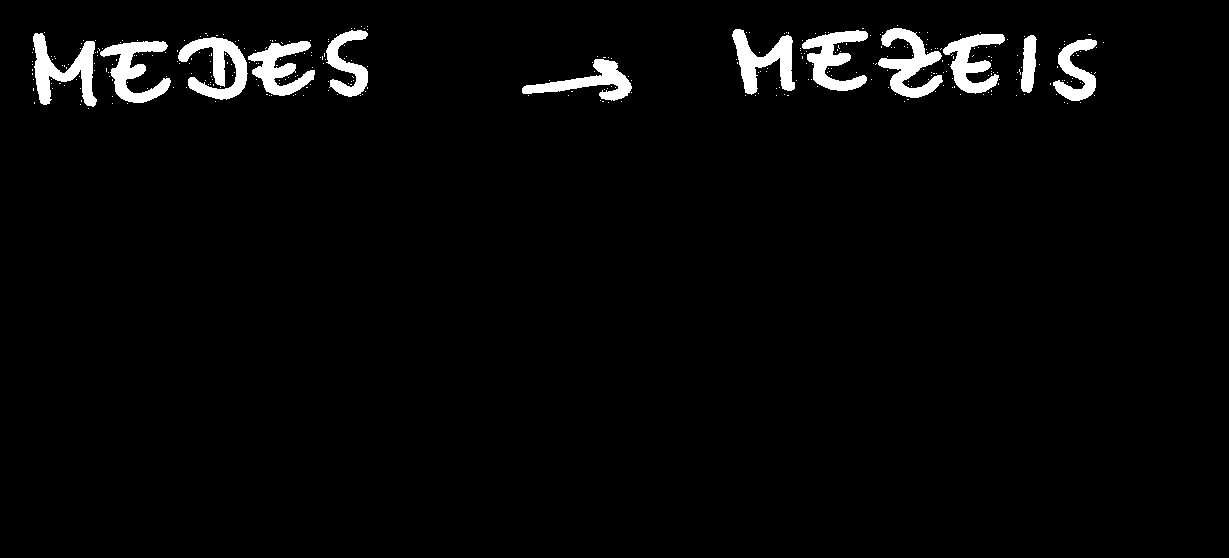 MEDES → MEZEIS